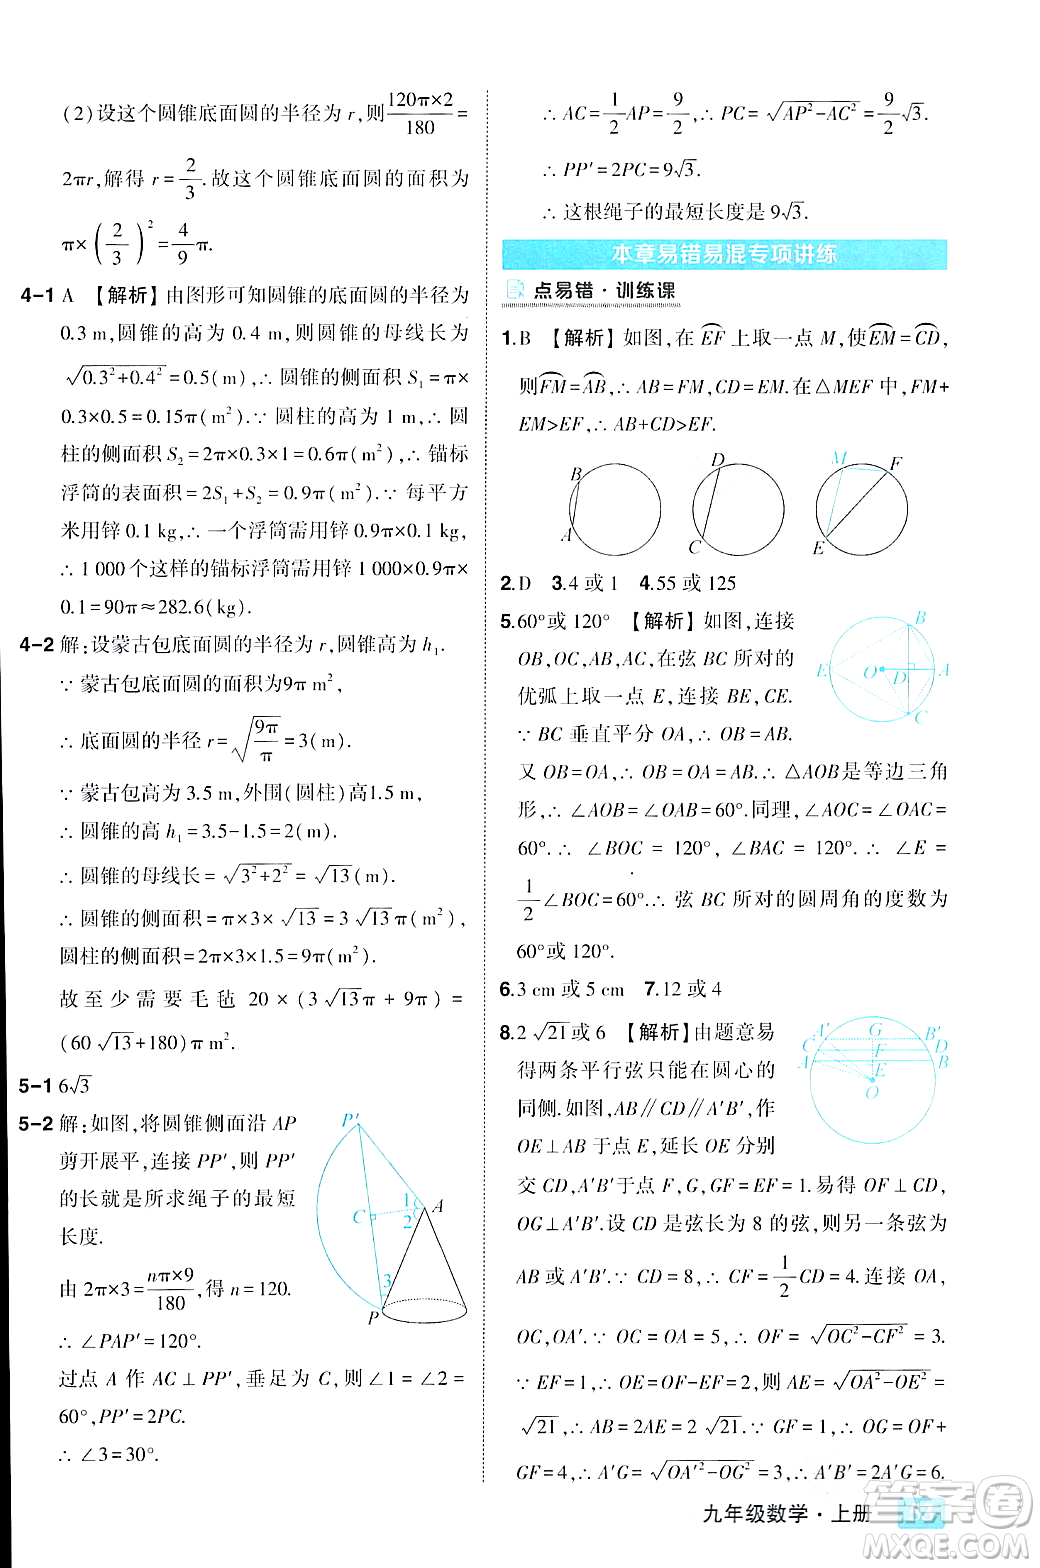 (2)设这个圆锥底面圆的半径为 r,则120π×2/180=
2πr,解得 r=2/3.故这个圆锥底面圆的面积为
π×(2/3)²=4/9π.
4-1 A 【解析】由图形可知圆锥的底面圆的半径为
0.3 m,圆锥的高为 0.4 m,则圆锥的母线长为
√(0.3²+0.4²)=0.5(m),∴圆锥的侧面积 S₁=π×
0.3×0.5=0.15π(m²).∵圆柱的高为 1 m,∴圆
柱的侧面积 S₂=2π×0.3×1=0.6π(m²),∴锚标
浮筒的表面积=2S₁+S₂=0.9π(m²).∵每平方
米用锌 0.1 kg,∴一个浮筒需用锌 0.9π×0.1 kg,
∴1 000 个这样的锚标浮筒需用锌 1 000×0.9π×
0.1=90π≈282.6(kg).
4-2 解:设蒙古包底面圆的半径为 r,圆锥高为 h₁.
∵蒙古包底面圆的面积为9π m²,
∴底面圆的半径 r=√(9π/π)=3(m).
∵蒙古包高为 3.5 m,外围(圆柱)高1.5 m,
∴圆锥的高 h₁=3.5-1.5=2(m),
∴圆锥的母线长=√(3²+2²)=√13(m),
∴圆锥的侧面积=π×3×√13=3√13π(m²),
圆柱的侧面积=2π×3×1.5=9π(m²).
故至少需要毛毡 20×(3√13π+9π)=
(60√13+180)π m².
5-1 6√3
5-2 解:如图,将圆锥侧面沿 AP
剪开展平,连接 PP′,则 PP′
的长就是所求绳子的最短
长度.
由 2π×3=nπ×9/180,得 n=120.
∴∠PAP′=120°.
过点 A 作 AC⊥PP′,垂足为 C,则∠1=∠2=
60°,PP′=2PC.
∴∠3=30°.
P′
1
C
2
A
3
P
∴AC=1/2AP=9/2,∴PC=√(AP²-AC²)=9/2√3.
∴PP′=2PC=9√3.
∴这根绳子的最短长度是 9√3.
本章易错易混专项讲练
点易错·训练课
1.B 【解析】如图,在 E͡F 上取一点 M,使E͡M=C͡D,
则F͡M=A͡B,∴AB=FM,CD=EM.在△MEF 中,FM+
EM>EF,∴AB+CD>EF.
B A
D C
M F E
2.D 3.4 或 1 4.55 或 125
5.60°或 120° 【解析】如图,连接
OB,OC,AB,AC,在弦 BC 所对的
优弧上取一点 E,连接 BE,CE.
∵BC 垂直平分 OA,∴OB=AB.
又 OB=OA,∴OB=OA=AB,∴△AOB是等边三角
形,∴∠AOB=∠OAB=60°.同理,∠AOC=∠OAC=
60°.∴∠BOC=120°,∠BAC=120°,∴∠E=
1/2∠BOC=60°.∴弦 BC 所对的圆周角的度数为
60°或 120°.
B
E O D A
C
6.3 cm 或 5 cm 7.12 或 4
8.2√21或 6 【解析】由题意易
得两条平行弦只能在圆心的
同侧.如图,AB∥CD∥A′B′,作
OE⊥AB 于点 E,延长 OE 分别
交 CD,A′B′于点 F,G,GF=EF=1.易得 OF⊥CD,
OG⊥A′B′.设 CD 是弦长为 8 的弦,则所求弦为
AB 或 A′B′.∵CD=8,∴CF=1/2CD=4.连接 OA,
OC,OA′.∵OC=OA=5,∴OF=√(OC²-CF²)=3.
∵EF=1,∴OE=OF-EF=2,∴AE=√(OA²-OE²)=
√21,∴AB=2AE=2√21.∵GF=1,∴OG=OF+
GF=4,∴A′G=√(OA′²-OG²)=3,∴A′B′=2A′G=6.
A′ G B′
C F D
A E B
O
九年级数学·上册
答案圈
MXQE.COM